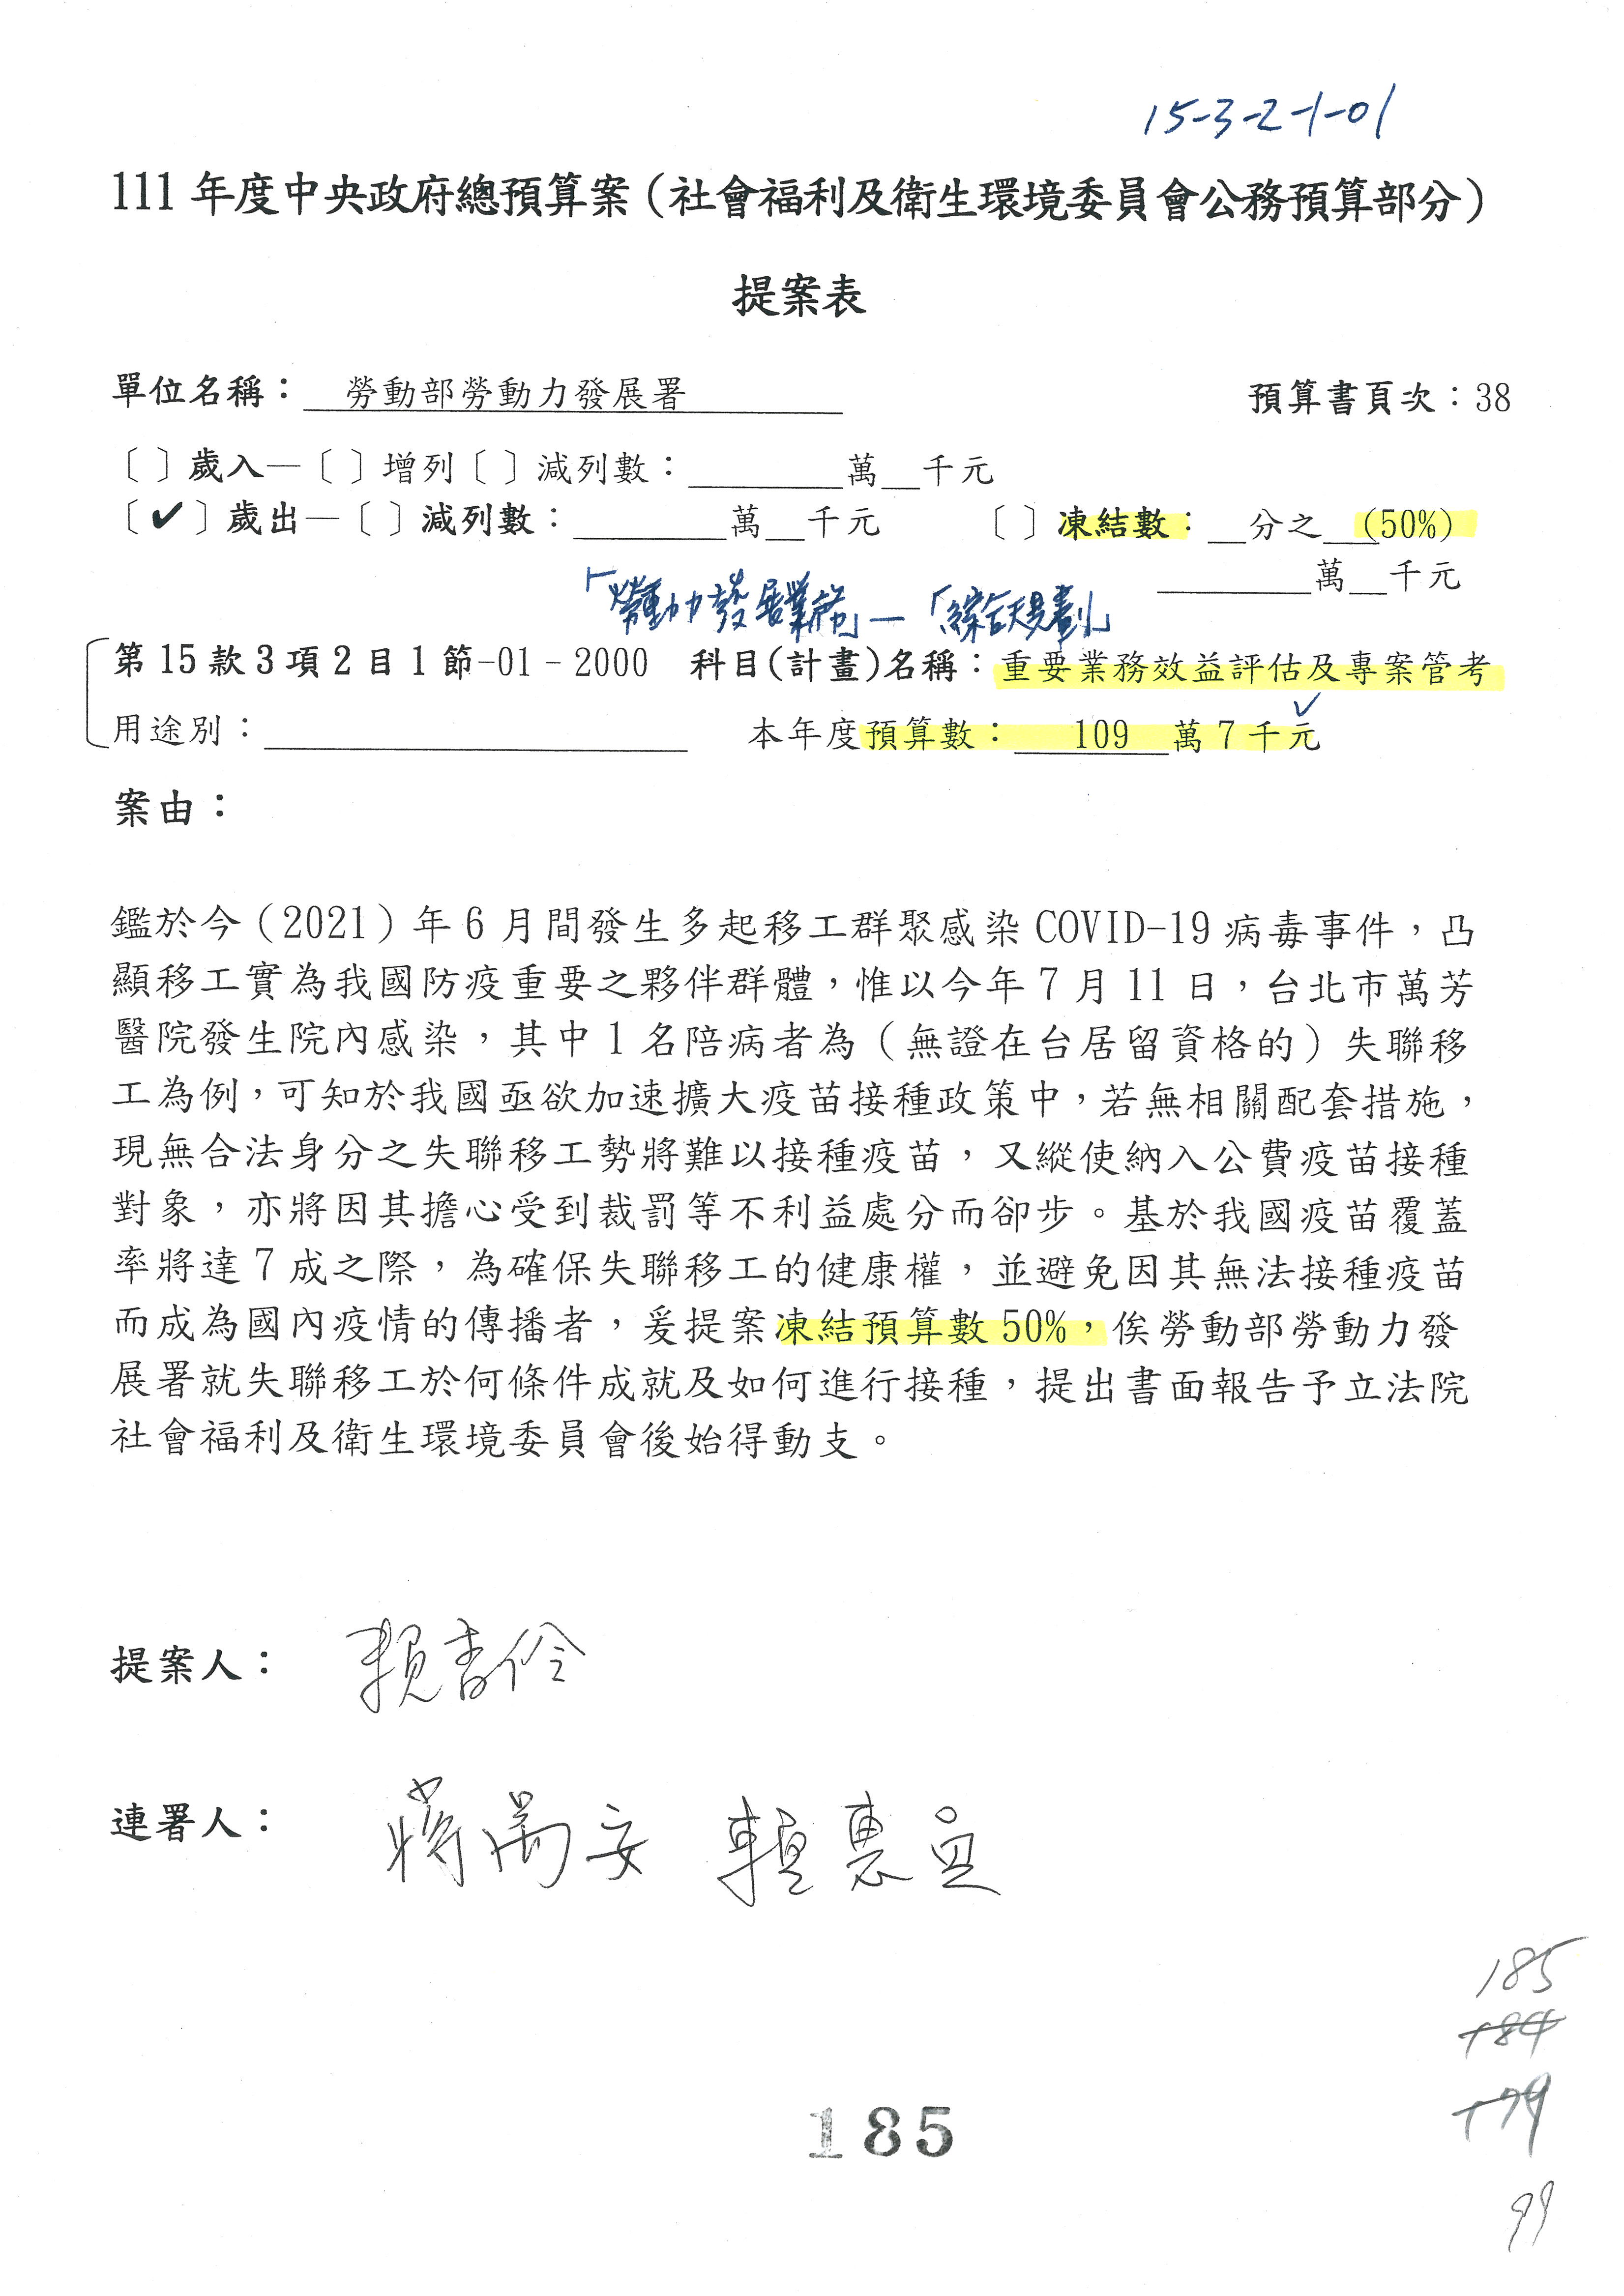 15-3-2-1-01
111 年度中央政府總預算案（社會福利及衛生環境委員會公務預算部分）
提案表
單位名稱：勞動部勞動力發展署 預算書頁次：38
〔 〕歲入—〔 〕增列〔 〕減列數：________萬__千元
〔✔〕歲出—〔 〕減列數：________萬__千元 〔 〕凍結數：__分之___(50%)
________萬__千元
「勞動力發展業務」—「綜合規劃」
第 15 款 3 項 2 目 1 節-01－2000 科目(計畫)名稱：重要業務效益評估及專案管考
用途別：____________ 本年度預算數： 109 萬 7 千元
案由：
鑑於今（2021）年 6 月間發生多起移工群聚感染 COVID-19 病毒事件，凸
顯移工實為我國防疫重要之夥伴群體，惟以今年 7 月 11 日，台北市萬芳
醫院發生院內感染，其中 1 名陪病者為（無證在台居留資格的）失聯移
工為例，可知於我國亟欲加速擴大疫苗接種政策中，若無相關配套措施，
現無合法身分之失聯移工勢將難以接種疫苗，又縱使納入公費疫苗接種
對象，亦將因其擔心受到裁罰等不利益處分而卻步。基於我國疫苗覆蓋
率將達 7 成之際，為確保失聯移工的健康權，並避免因其無法接種疫苗
而成為國內疫情的傳播者，爰提案凍結預算數 50%，俟勞動部勞動力發
展署就失聯移工於何條件成就及如何進行接種，提出書面報告予立法院
社會福利及衛生環境委員會後始得動支。
提案人： 賴香伶
連署人： 蔣萬安 賴惠員
185
184
179
185
99